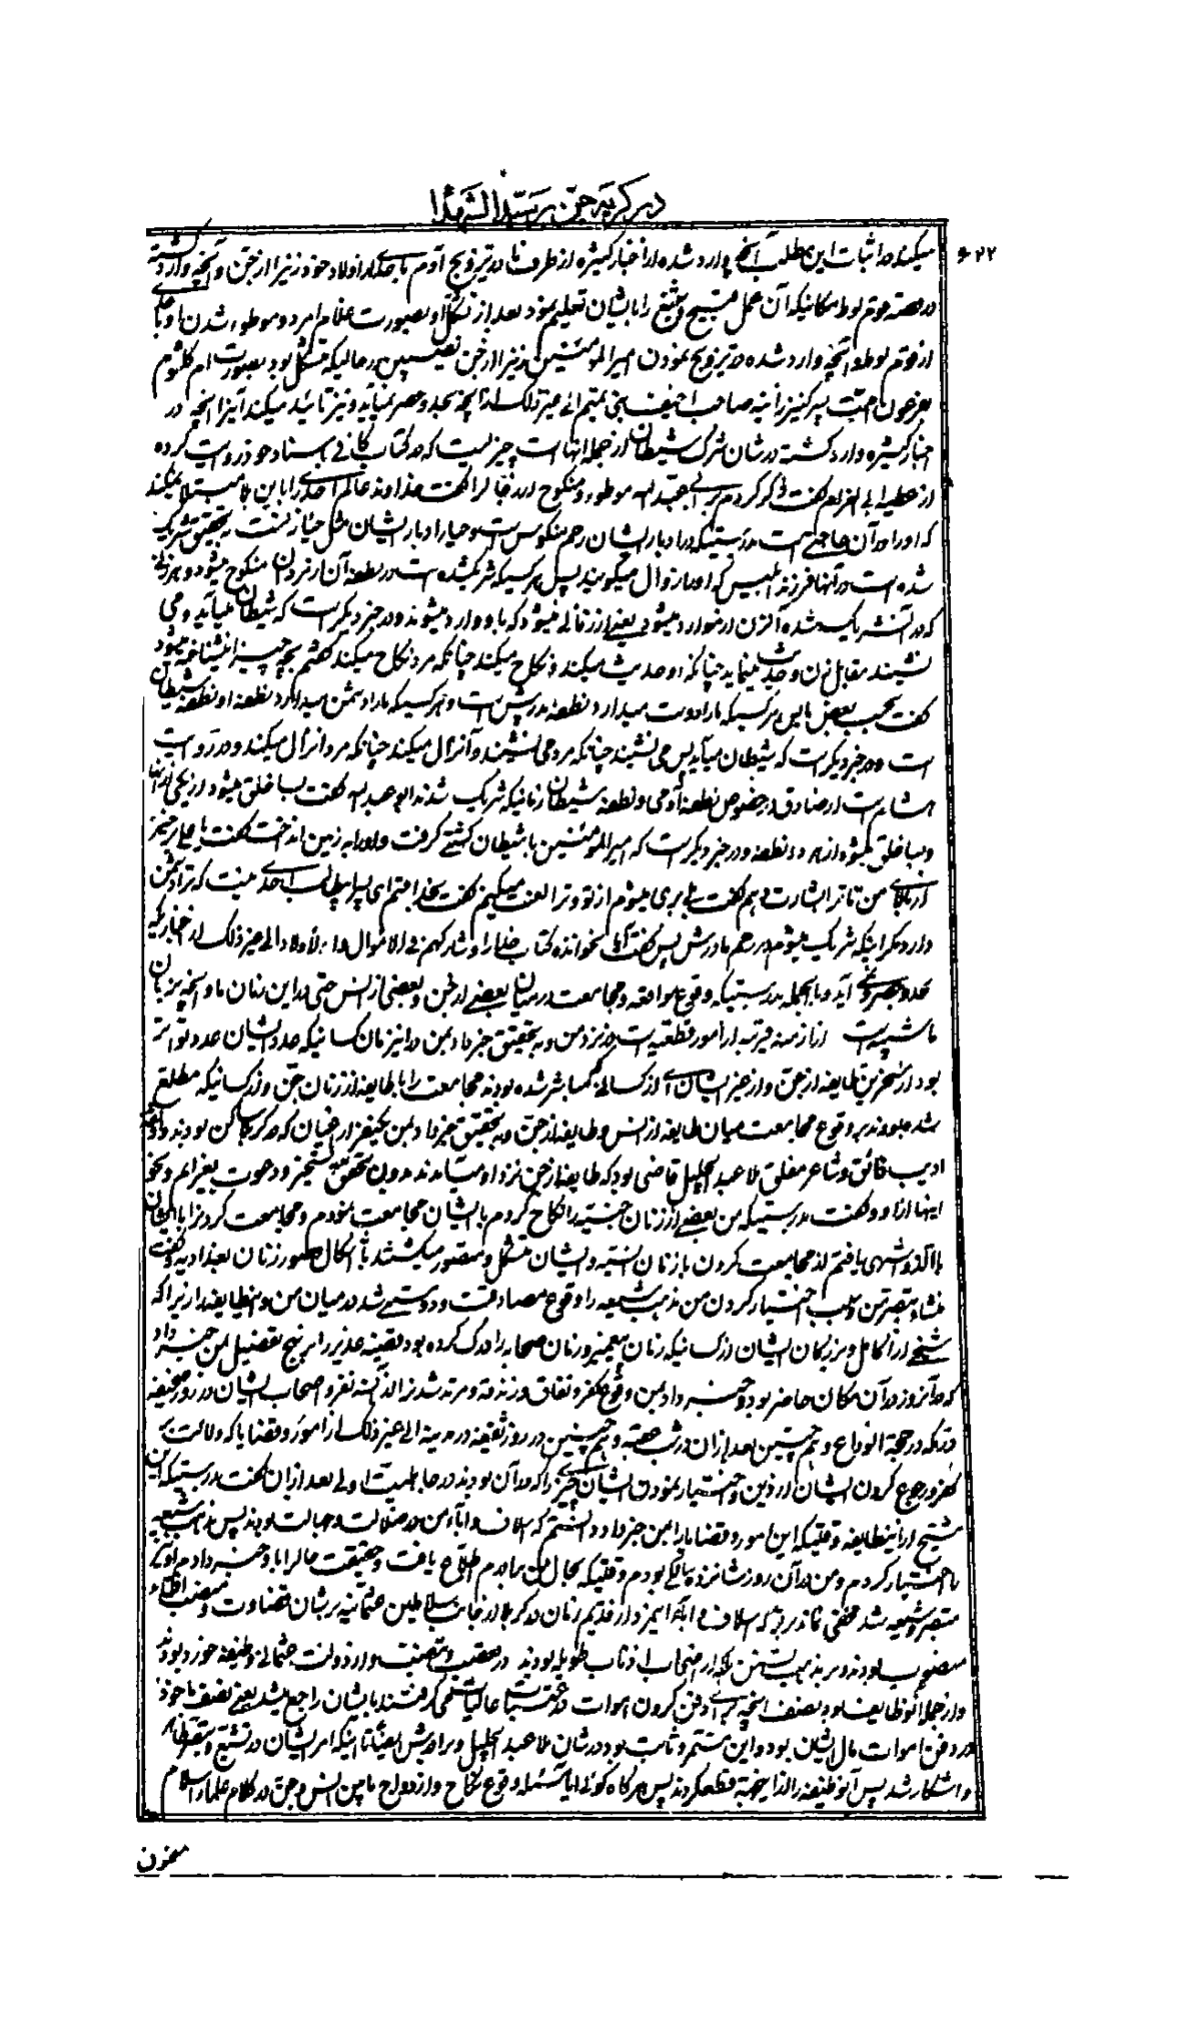 در گریه جن بر سید الشهدا
۶۲۲
میکند در اثبات این مطلب آنچه وارد شده از اخبار کثیره از طرف ما در تزویج آدم یکی از اولاد خود زنیرا از جن و آنچه وارد گشته
در قصه قوم لوط مکانیکه آن عمل قبیح و شنیع را بایشان تعلیم نمود بعد از تشکل او بصورت غلام امرد و موطوء شدن او
از قوم لوط و آنچه وارد شده در تزویج نمودن امیر المؤمنین زنیرا از جن نصیبین در حالیکه متشکل بود بصورت ام کلثوم
صاحب احنف بنی تمیم الی غیر ذلک از آنچه بحد و حصر نمیآید و نیز تائید میکند اینرا آنچه در
اخبار کثیره وارد گشته در شان شرک شیطان از جمله آنها است چیزیست که در کتاب کافی باسناد خود روایت کرده
از عطیه گفت ذکر کردم برای موطوء و منکوح از رجال را گفت خداوند عالم احدی را باین بلا مبتلا نمیکند
که او را در آن حاجتی است بدرستیکه در ادبار ایشان رحم منکوس است و حیاء ادبار ایشان مثل حیاء زنست به تحقیق شریک
شده است در آنها فرزند ابلیس که او را زوال میگویند پس هر کسیکه شریک شده است در نطفه آن از مردان منکوح میشود و هر زنی
که در آن شریک شده آن زن از موارد میشود یعنی از زنانی میشود که باو وارد میشوند و در خبر دیگر است که شیطان میآید و می
نشیند مقابل زن و حدیث مینماید چنانکه او حدیث میکند و نکاح میکند چنانکه مرد نکاح میکند گفتم بچه چیز شناخته میشود
گفت بحب و بغض ما پس هر کسیکه ما را دوست میدارد نطفه مرد است و هر کسیکه ما را دشمن میدارد نطفه او نطفه شیطان
است و در خبر دیگر است که شیطان میآید پس می نشیند چنانکه مرد می نشیند و انزال میکند چنانکه مرد انزال میکند و در روایت
هشام است از صادق در خصوص نطفه آدمی و نطفه شیطان زمانیکه شریک شدند ابو عبد الله گفت بسا خلق میشود از یکی از آنها
و بسا خلق میشود از هر دو نطفه و در خبر دیگر است که امیر المؤمنین با شیطان کشتی گرفت و او را بر زمین انداخت گفت یا علی برخیز
از بالای من تا ترا بشارت دهم گفت بلی بری میشوم از تو و ترا لعنت میکنم گفت بخدا قسم ای پسر ابیطالب احدی نیست که ترا دشمن
دارد مگر اینکه شریک میشوم در رحم مادرش پس گفت آیا نخوانده کتاب خدا را و شارکهم فی الاموال و الاولاد الی غیر ذلک از اخباریکه
بحد و حصر نمی آید و بالجمله بدرستیکه وقوع مواقعه و مجامعت در میان بعضی از جن و بعضی از انس حتی در این زمان ما و آنچه بزمان
ما شبیه است از ازمنه قریبه از امور قطعیه است در نزد من و به تحقیق خبر داد بمن در اینزمان کسانیکه عدد ایشان عدد تواتر
بود از مسخرین طایفه از جن و از غیر ایشان از کسانیکه مباشر شده بودند مجامعت را با طایفه از زنان جن و از کسانیکه مطلع
شده بودند بر وقوع مجامعت میان طایفه از انس و طایفه از جن و به تحقیق خبر داد بمن یکنفر از اخیار که در کربلا ساکن بودند
ادیب فائق و شاعر مفلق ملا عبد الجلیل قاضی بود که طایفه از جن نزد او میآمدند بدون تحقق تسخیر و دعوت بعزائم و نحو
اینها از او و گفت بدرستیکه من بعضی از زنان جنیه را نکاح کردم با ایشان مجامعت نمودم و مجامعت کردنرا با ایشان
الذ و اشهی یافتم از مجامعت کردن با زنان انسیه و ایشان متشکل و متصور میگشتند باشکال و صور زنان بغدادیه و گفت
منشاء تبصر من و سبب اختیار کردن من مذهب شیعه را وقوع مصادقت و دوستی شد در میان من و اینطایفه زیرا که
شیخی از اکامل و بزرگان ایشان از کسانیکه زمان پیغمبر و زمان صحابه را درک کرده بود قضیه غدیر را بر نهج تفصیل بمن خبر داد
که در آنروز در آن مکان حاضر بود و خبر داد بمن وقوع کفر و نفاق و زندقه و مرتد شدن از آن سه نفر و اصحاب ایشان در روز صحیفه
در مکه در حجة الوداع و هم چنین بعد از آن در شب عقبه و هم چنین در روز سقیفه در مدینه الی غیر ذلک از امور و قضایا که دلالت بر
کفر و رجوع کردن ایشان از دین و اختیار نمودن ایشان چیزی را که در آن بودند در جاهلیت اولی بعد از آن گفت بدرستیکه این
شیخ از اینطایفه وقتیکه این امور و قضایا را بمن خبر داد دانستم که اسلاف و آباء من در ضلالت و جهالت بودند پس مذهب شیعه
را اختیار کردم و من در آن روز شانزده سالگی بودم و وقتیکه بحال من برادرم اطلاع یافت و حقیقت حال را باو خبر دادم او نیز
متبصر و شیعه شد مخفی نماند بر تو که اسلاف و آباء اینمرد از قدیم زمان در کربلا از جانب سلاطین عثمانیه بر شان قضاوت و منصب افتاء
منصوب بودند و بر مذهب تسنن بلکه از اصحاب اذناب طویله بودند در تعصب و تصنب و از دولت عثمانی وظیفه خور بودند
و از جمله آنوظایف بود نصف آنچه برای دفن کردن اموات در عتبات عالیات می گرفتند بایشان راجع میشد یعنی نصف ماخوذ
در دفن اموات مال ایشان بود و این مستمر و ثابت بود در شان ملا عبد الجلیل و برادرش ایضا تا اینکه امر ایشان در تشیع و تبصر ظاهر
و اشکار شد پس آنوظیفه را از ایشان قطع کردند پس هرگاه گوئی ایا مسئله وقوع نکاح و ازدواج مابین انس و جن در کلام علماء اسلام
معنون